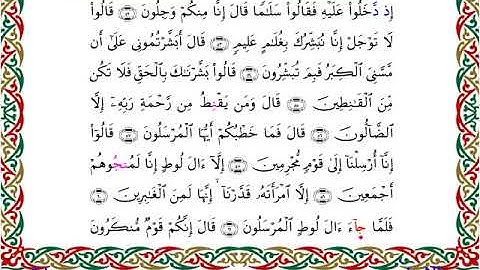 إِذ دَّخَلُوا۟ عَلَيْهِ فَقَالُوا۟ سَلَـٰمًا قَالَ إِنَّا مِنكُمْ وَجِلُونَ ۝ قَالُوا۟
لَا تَوْجَلْ إِنَّا نُبَشِّرُكَ بِغُلَـٰمٍ عَلِيمٍ ۝ قَالَ أَبَشَّرْتُمُونِى عَلَىٰٓ أَن
مَّسَّنِىَ ٱلْكِبَرُ فَبِمَ تُبَشِّرُونَ ۝ قَالُوا۟ بَشَّرْنَـٰكَ بِٱلْحَقِّ فَلَا تَكُن
مِّنَ ٱلْقَـٰنِطِينَ ۝ قَالَ وَمَن يَقْنِطُ مِن رَّحْمَةِ رَبِّهِۦٓ إِلَّا
ٱلضَّآلُّونَ ۝ قَالَ فَمَا خَطْبُكُمْ أَيُّهَا ٱلْمُرْسَلُونَ ۝ قَالُوٓا۟
إِنَّآ أُرْسِلْنَآ إِلَىٰ قَوْمٍ مُّجْرِمِينَ ۝ إِلَّآ ءَالَ لُوطٍ إِنَّا لَمُنَجُّوهُمْ
أَجْمَعِينَ ۝ إِلَّا ٱمْرَأَتَهُۥ قَدَّرْنَآ ۙ إِنَّهَا لَمِنَ ٱلْغَـٰبِرِينَ ۝
فَلَمَّا جَآءَ ءَالَ لُوطٍ ٱلْمُرْسَلُونَ ۝ قَالَ إِنَّكُمْ قَوْمٌ مُّنكَرُونَ